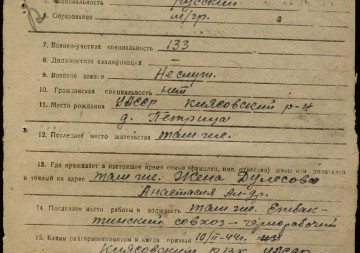 5. Национальность русский
6. Образование м/гр.
7. Военно-учетная специальность 133
8. Должностная квалификация —
9. Военное звание Неслуж.
10. Гражданская специальность нет
11. Место рождения УАССР Киясовский р-н
д. Петрица
12. Последнее место жительства там же.
13. Где проживает в настоящее время семья (фамилия, имя, отчество) жены или родителей
и точный их адрес там же. Жена Дулесова
Анастасия Андр.
14. Последнее место работы и должность там же
совхоз - чернорабочий
15. Каким райгорвоенкоматом и когда призван 10/II-44г.
Киясовский РВК УАССР